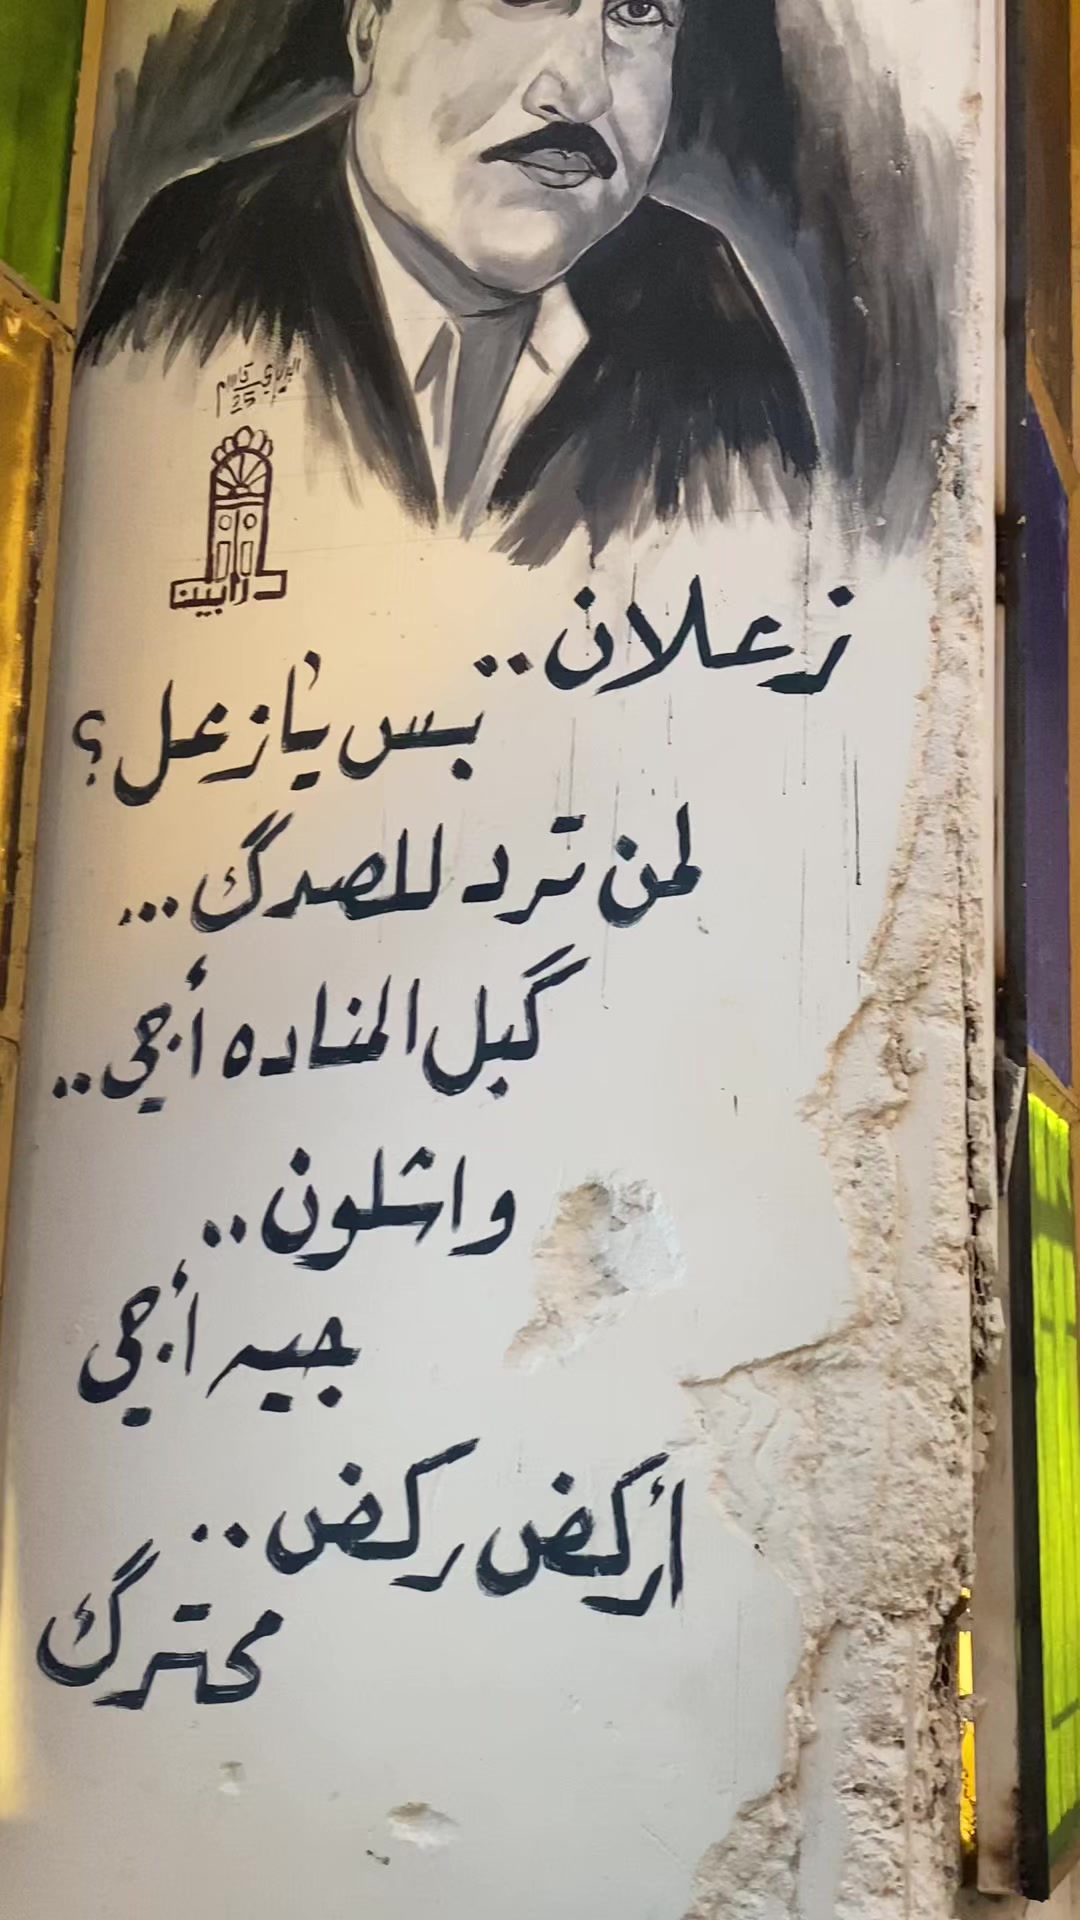 25
درابين
زعلان..
بس يا زعل؟
لمن ترد للصدگ...
گبل المناده أجي..
واشلون..
جيه أجي
أركض ركض..
محترگ